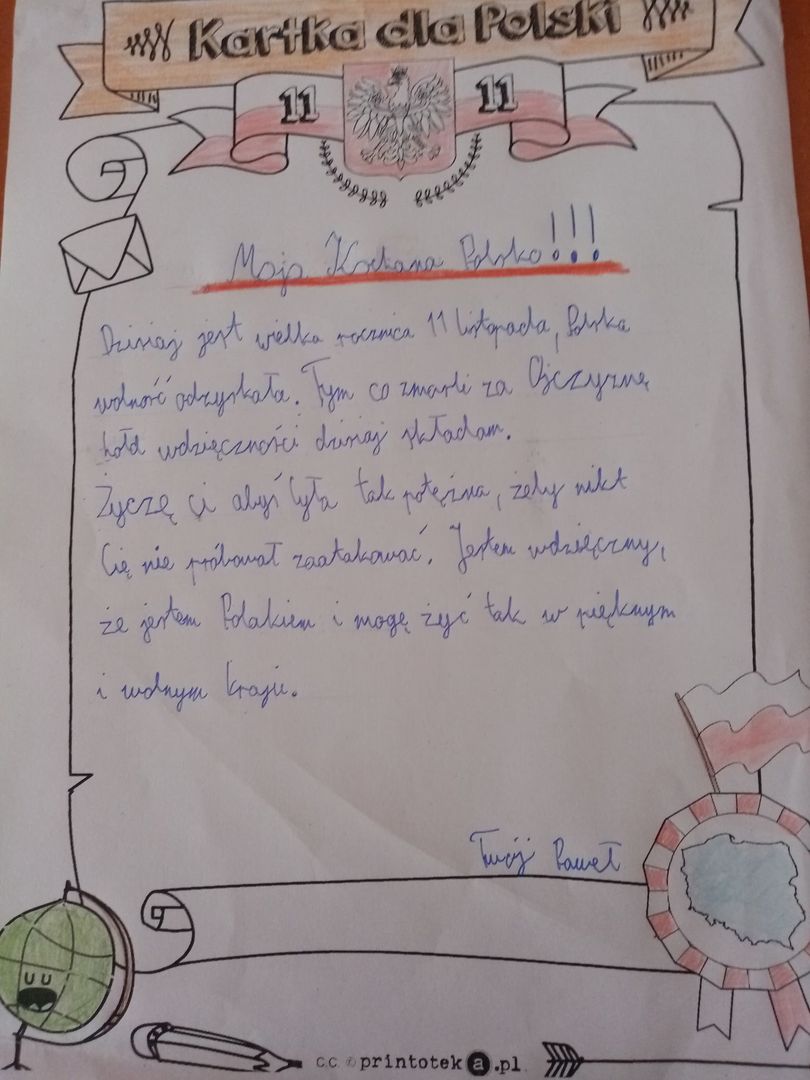 Kartka dla Polski
11 11
Moja Kochana Polsko!!!
Dzisiaj jest wielka rocznica 11 listopada, Polska
wolność odzyskała. Tym co zmarli za Ojczyznę
hołd wdzięczności dzisiaj składam.
Życzę ci abyś była tak potężna, żeby nikt
Cię nie próbował zaatakować. Jestem wdzięczny,
że jestem Polakiem i mogę żyć tak w pięknym
i wolnym kraju.
Twój Paweł
c.c. © printoteka.pl